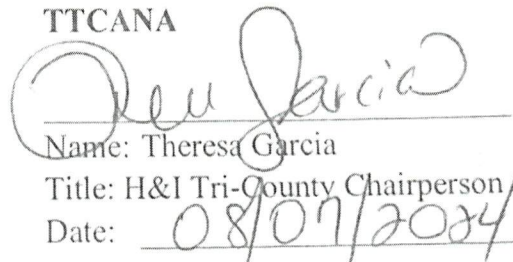 TTCANA
Garcia
Name: Theresa Garcia
Title: H&I Tri-County Chairperson
Date: 08/07/2024